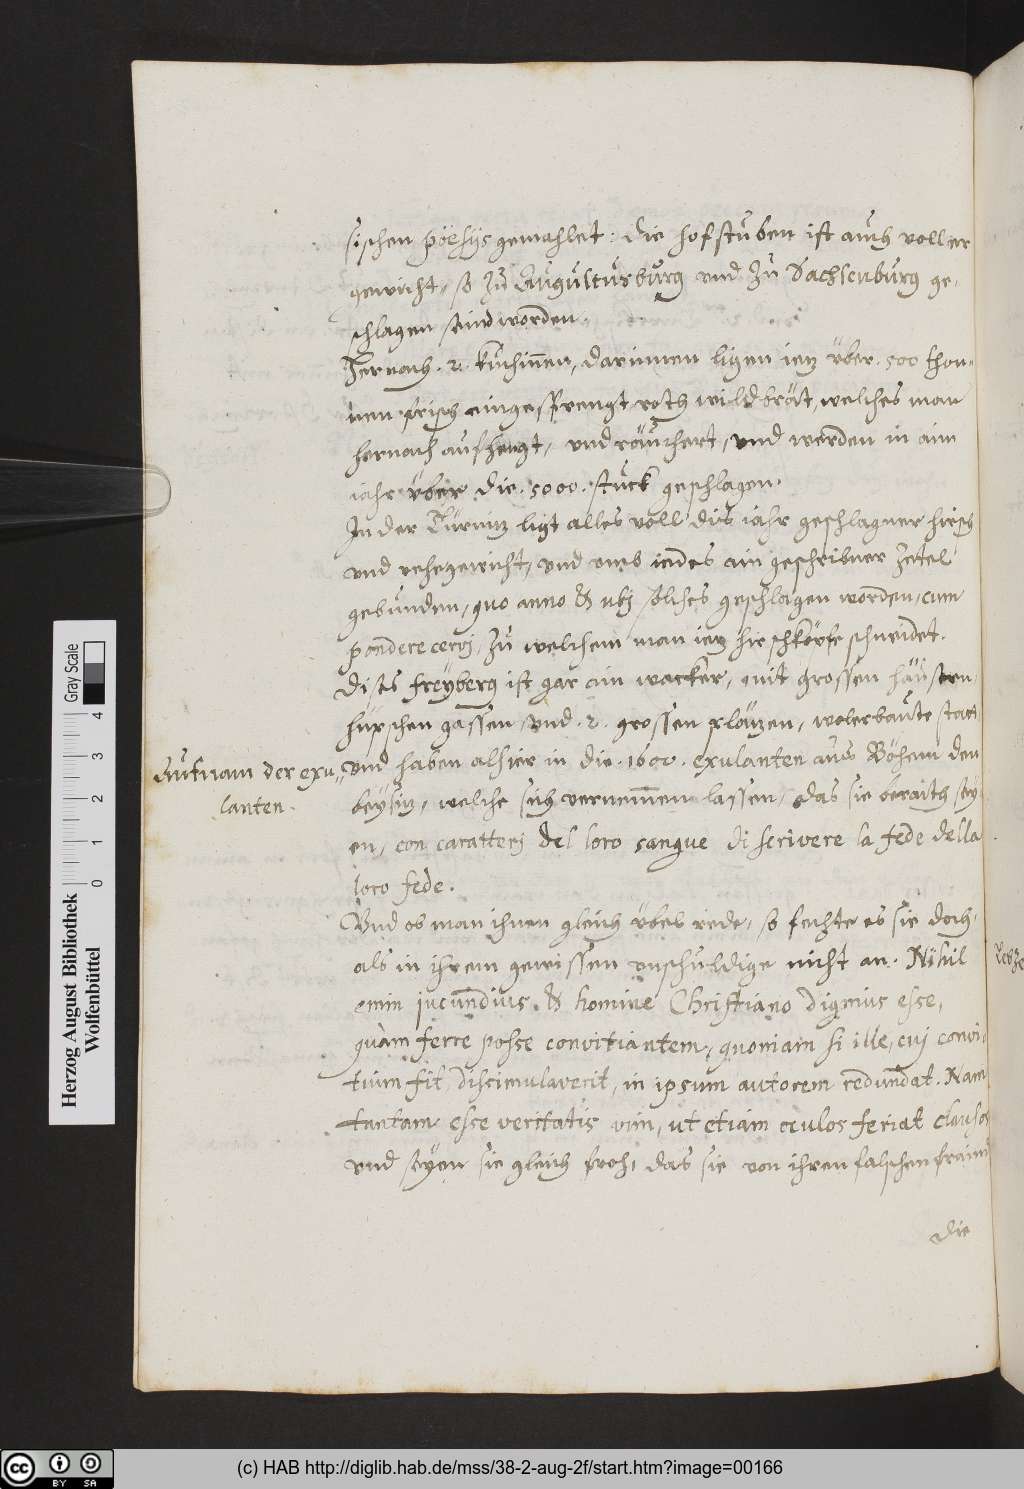 sischen poësijs gemahlet: die hofstuben ist auch voller
gewicht, so zu Augustusburg vnd zu Sachsenburg ge-
schlagen seind worden.
Hernach .2. kuchinen, darinnen ligen iez über .500 thon-
nen frisch eingesprengt roth wildbrät, welches man
hernach aufhengt, vnd räuchert, vnd werden in aim
iahr über die .5000. stuck geschlagen.
In der Türniz ligt alles voll dis iahr geschlagner hirsch
vnd rehegewicht, vnd vmb iedes ain geschribner Zetel
gebunden, quo anno & ubj solches geschlagen worden, cum
pondere cervj, zu welchem man iez hirschköpfe schneidet.
Dises Freyberg ist gar ain wacker, mit grossen häusern,
hüpschen gassen, vnd .2. grossen pläzen, wolerbaute stat,
Aufnam der exu-
lanten.
vnd haben alhier in die .1600. exulanten aus Böhem den
beysiz, welche sich vernemen lassen, das sie beraith sey-
en, con caratterj del loro sangue di scrivere la fede della
loro fede.
Vnd ob man ihnen gleich übel rede, so fechte es sie doch,
als in ihrem gewissen vnschuldige nicht an. Nihil
enim jucundius, & homine Christiano dignius esse,
quàm ferre posse convitiantem, quoniam si ille, cuj convi-
tium fit, dissimulaverit, in ipsum autorem redundat. Nam
tantam esse veritatis vim, ut etiam oculos feriat clausos
vnd seyen sie gleich froh, das sie von ihren falschen
die
Herzog August Bibliothek
Wolfenbüttel
Gray Scale
0 1 2 3 4
(c) HAB http://diglib.hab.de/mss/38-2-aug-2f/start.htm?image=00166
cc BY SA